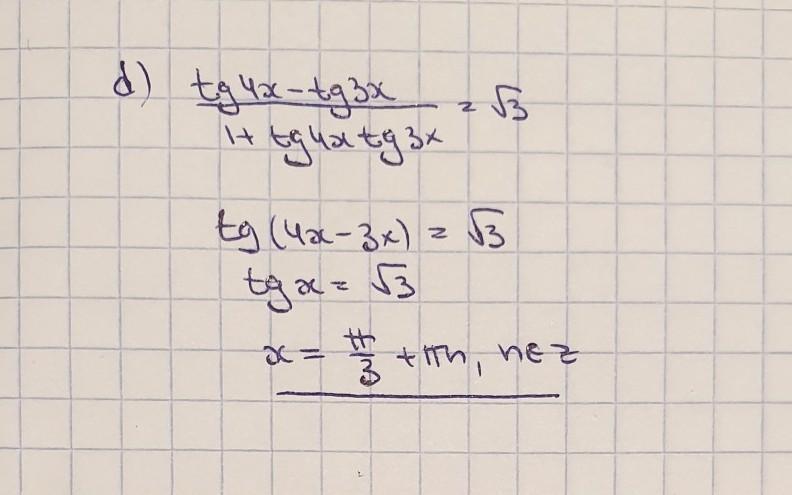 d) tg4x-tg3x / 1+ tg4x tg3x = √3
tg(4x-3x) = √3
tgx = √3
x = π/3 + πn, n∈z